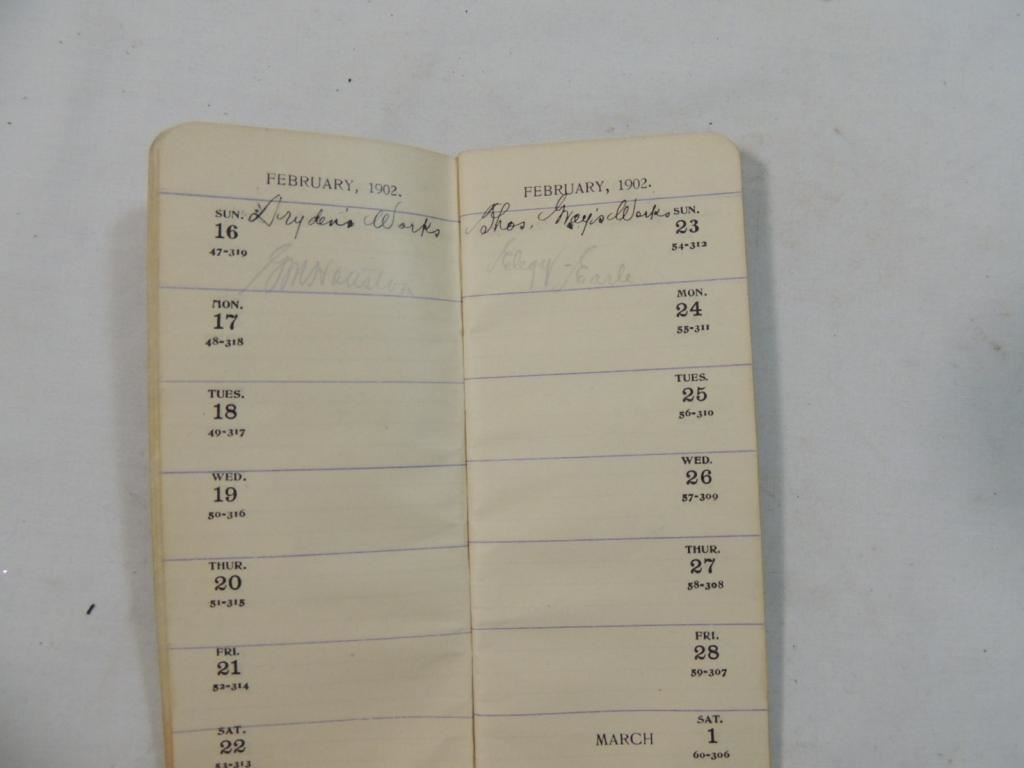 FEBRUARY, 1902.
SUN. Dryden's Works
16
47-319
MON.
17
48-318
TUES.
18
49-317
WED.
19
50-316
THUR.
20
51-315
FRI.
21
52-314
SAT.
22
53-313
FEBRUARY, 1902.
Thos. Gray's Works SUN.
23
Elegy - Earle
54-312
MON.
24
55-311
TUES.
25
56-310
WED.
26
57-309
THUR.
27
58-308
FRI.
28
59-307
SAT.
MARCH 1
60-306